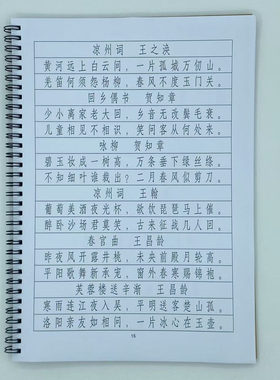 凉州词 王之涣
黄河远上白云间，一片孤城万仞山。
羌笛何须怨杨柳，春风不度玉门关。
回乡偶书 贺知章
少小离家老大回，乡音无改鬓毛衰。
儿童相见不相识，笑问客从何处来。
咏柳 贺知章
碧玉妆成一树高，万条垂下绿丝绦。
不知细叶谁裁出？二月春风似剪刀。
凉州词 王翰
葡萄美酒夜光杯，欲饮琵琶马上催。
醉卧沙场君莫笑，古来征战几人回。
春宫曲 王昌龄
昨夜风开露井桃，未央前殿月轮高。
平阳歌舞新承宠，帘外春寒赐锦袍。
芙蓉楼送辛渐 王昌龄
寒雨连江夜入吴，平明送客楚山孤。
洛阳亲友如相问，一片冰心在玉壶。